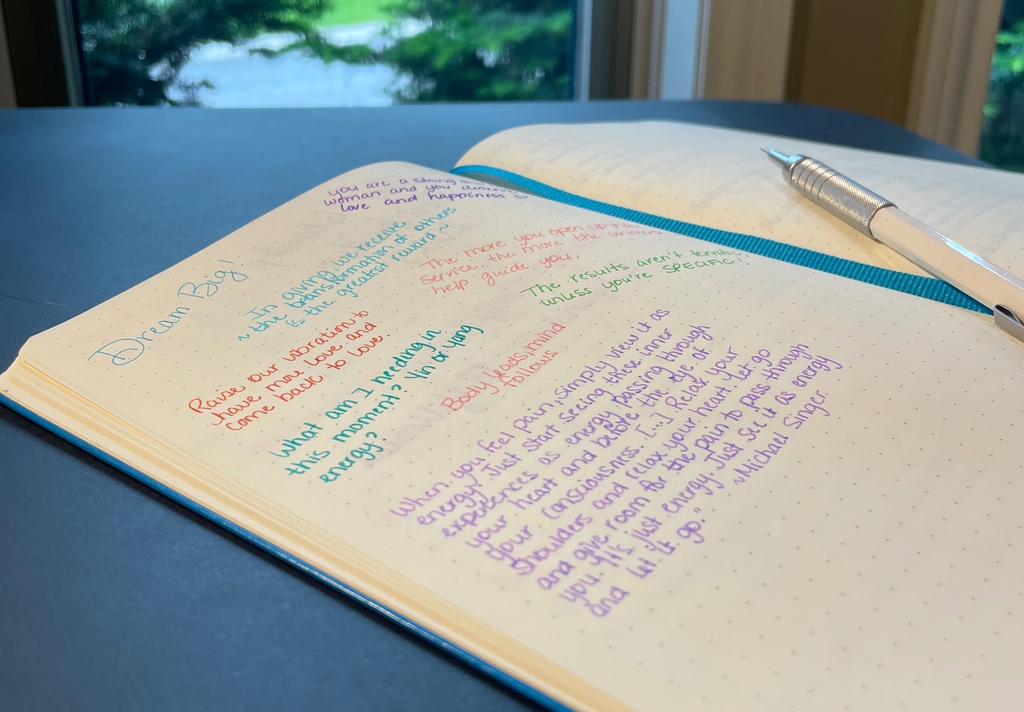 you are a strong
woman and you deserve
love and happiness
Dream Big!
In giving we receive
~ the transformation of others
is the greatest reward ~
The more you open up
service, the more the
help guide you.
The results aren't
unless you're SPECIFIC
Raise our vibration to
have more love and
come back to love
What am I needing in
this moment? Yin or yang
energy?
Body leads, mind
follows
When you feel pain, simply view it as
energy. Just start seeing these inner
experiences as energy passing through
your heart and before the eye of
your consciousness. [...] Relax your
shoulders and relax your heart. Let go
and give room for the pain to pass through
you. It's just energy. Just see it as energy
and let it go." ~Michael Singer